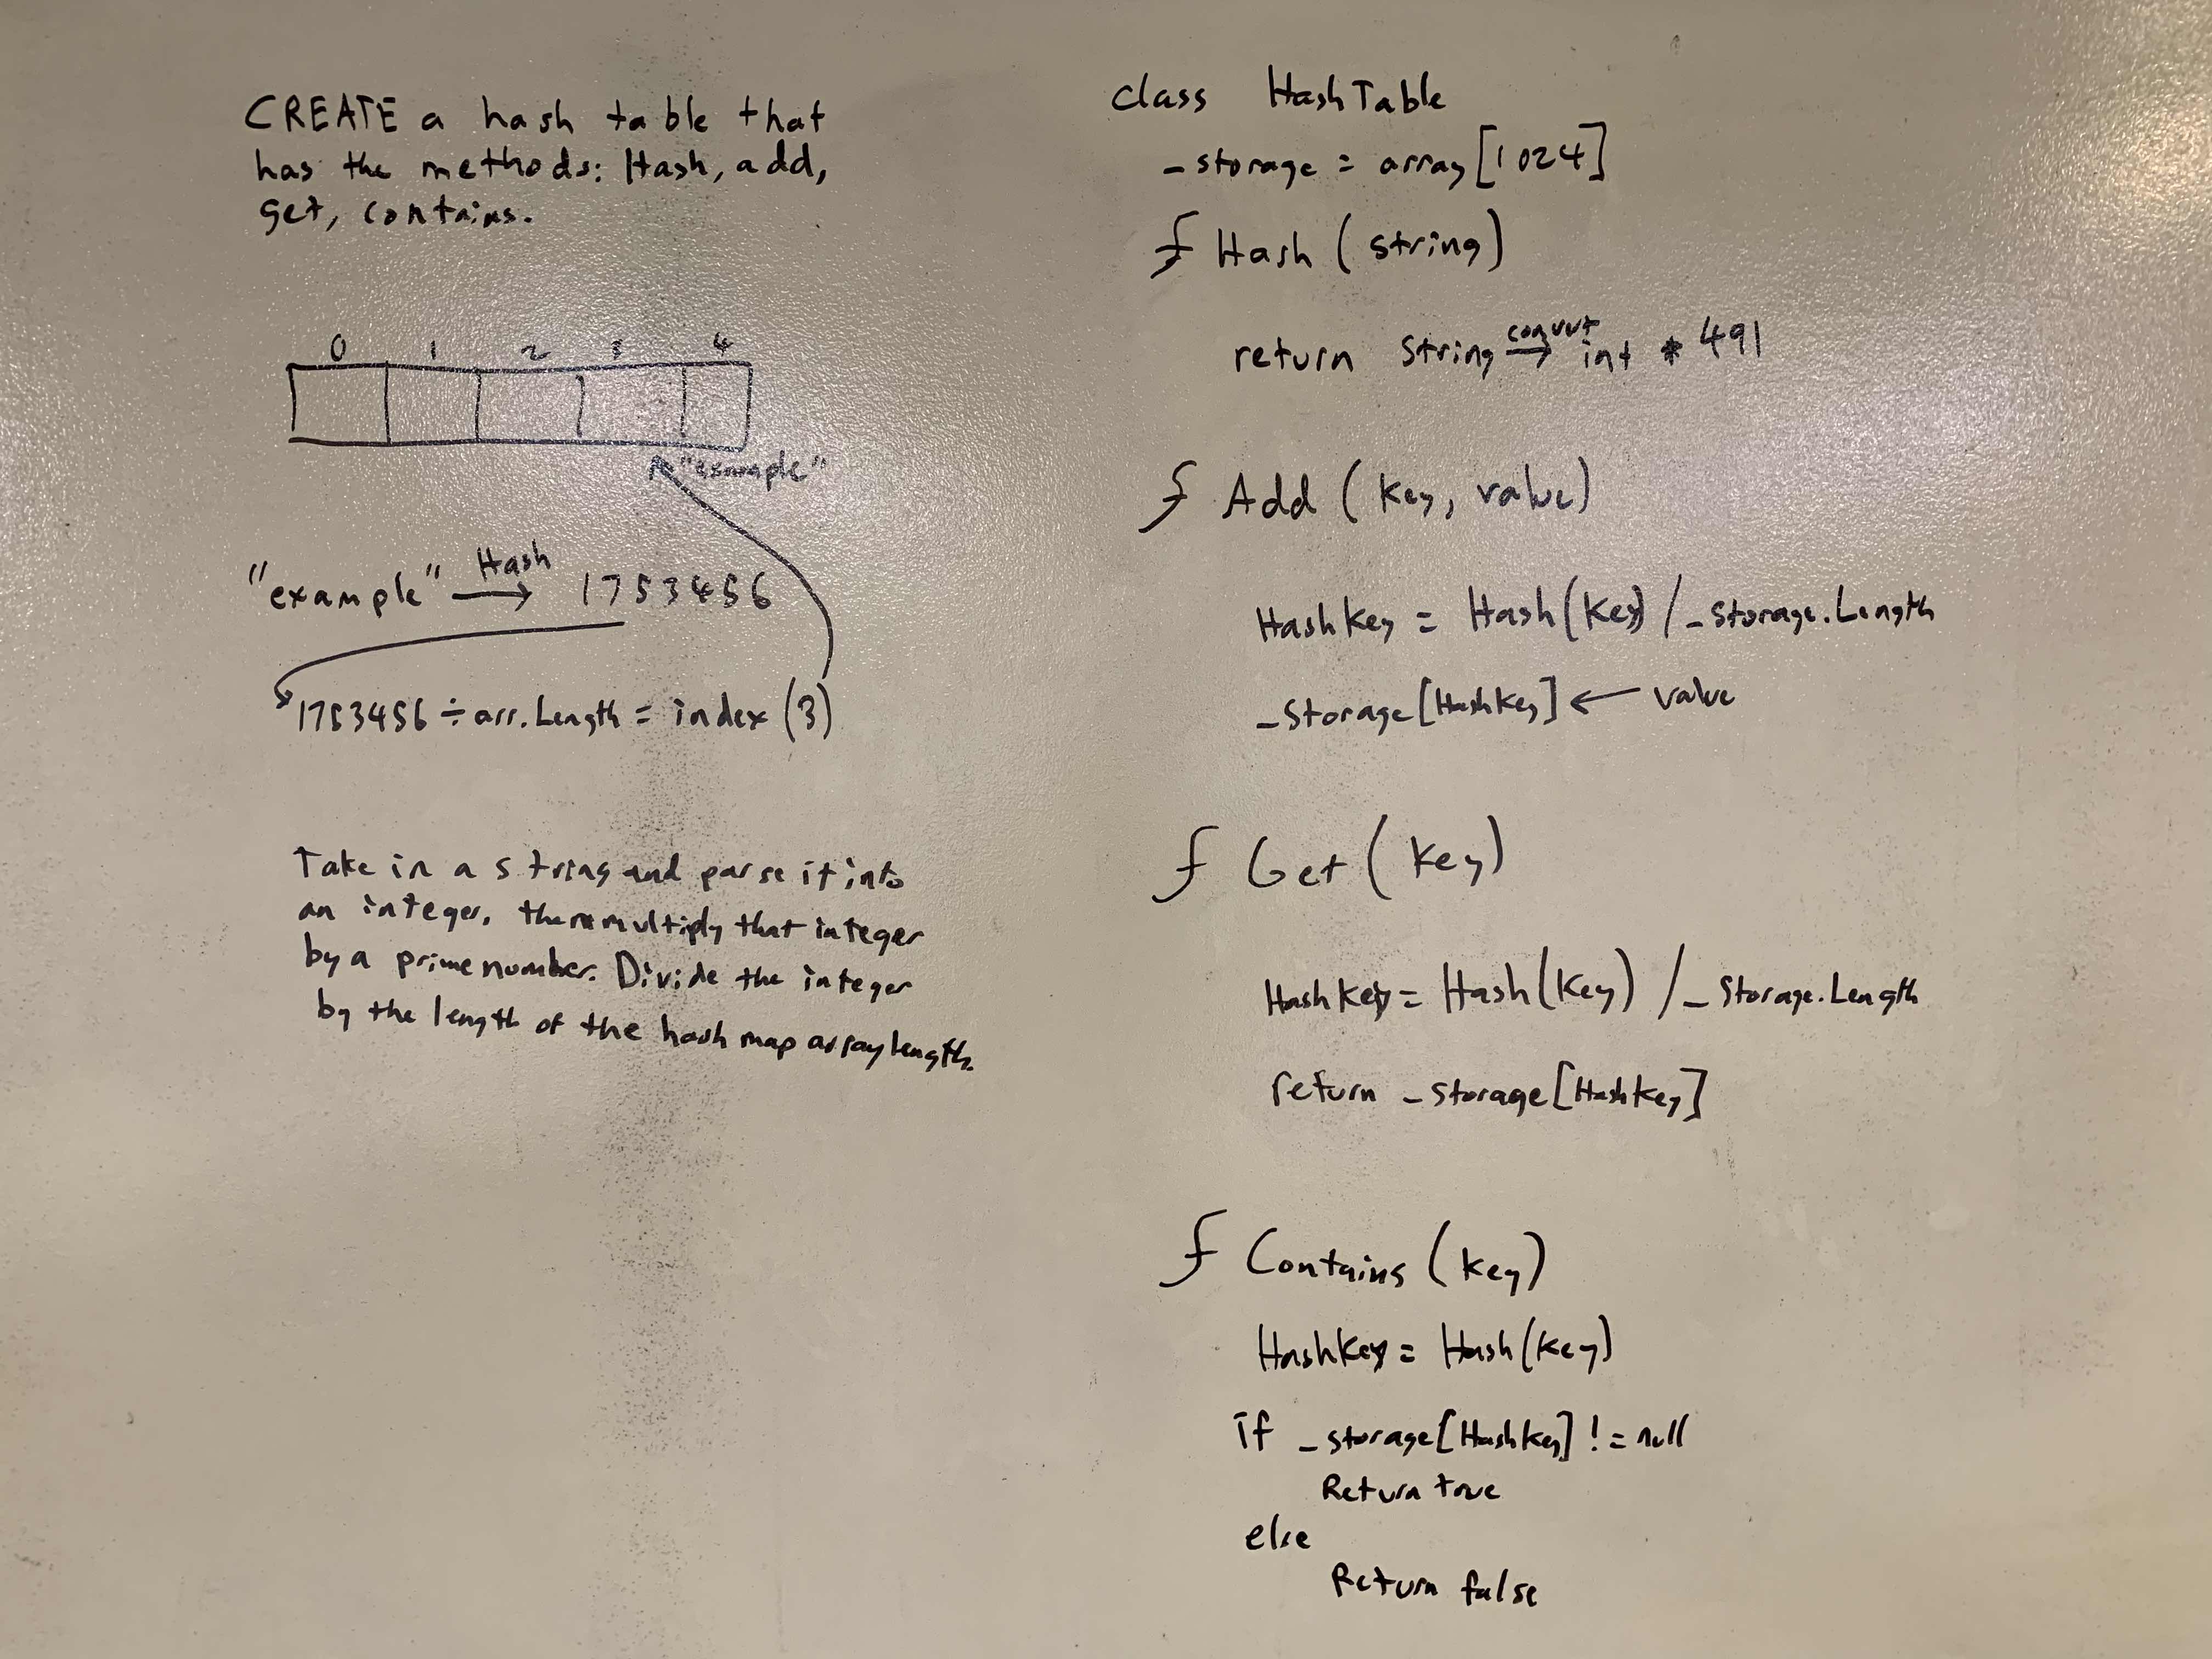 CREATE a hash table that
has the methods: Hash, add,
get, contains.
0 1 2 3 4
"example"
"example" Hash → 1753456
1753456 ÷ arr.Length = index (3)
Take in a string and parse it into
an integer, then multiply that integer
by a prime number. Divide the integer
by the length of the hash map array length.
class HashTable
_storage = array[1024]
f Hash (string)
return string convert → int * 491
f Add (key, value)
HashKey = Hash(Key) / _Storage.Length
_Storage[HashKey] ← value
f Get (key)
HashKey = Hash(Key) / _Storage.Length
return _storage[HashKey]
f Contains (key)
HashKey = Hash(key)
if _storage[HashKey] != null
Return true
else
Return false